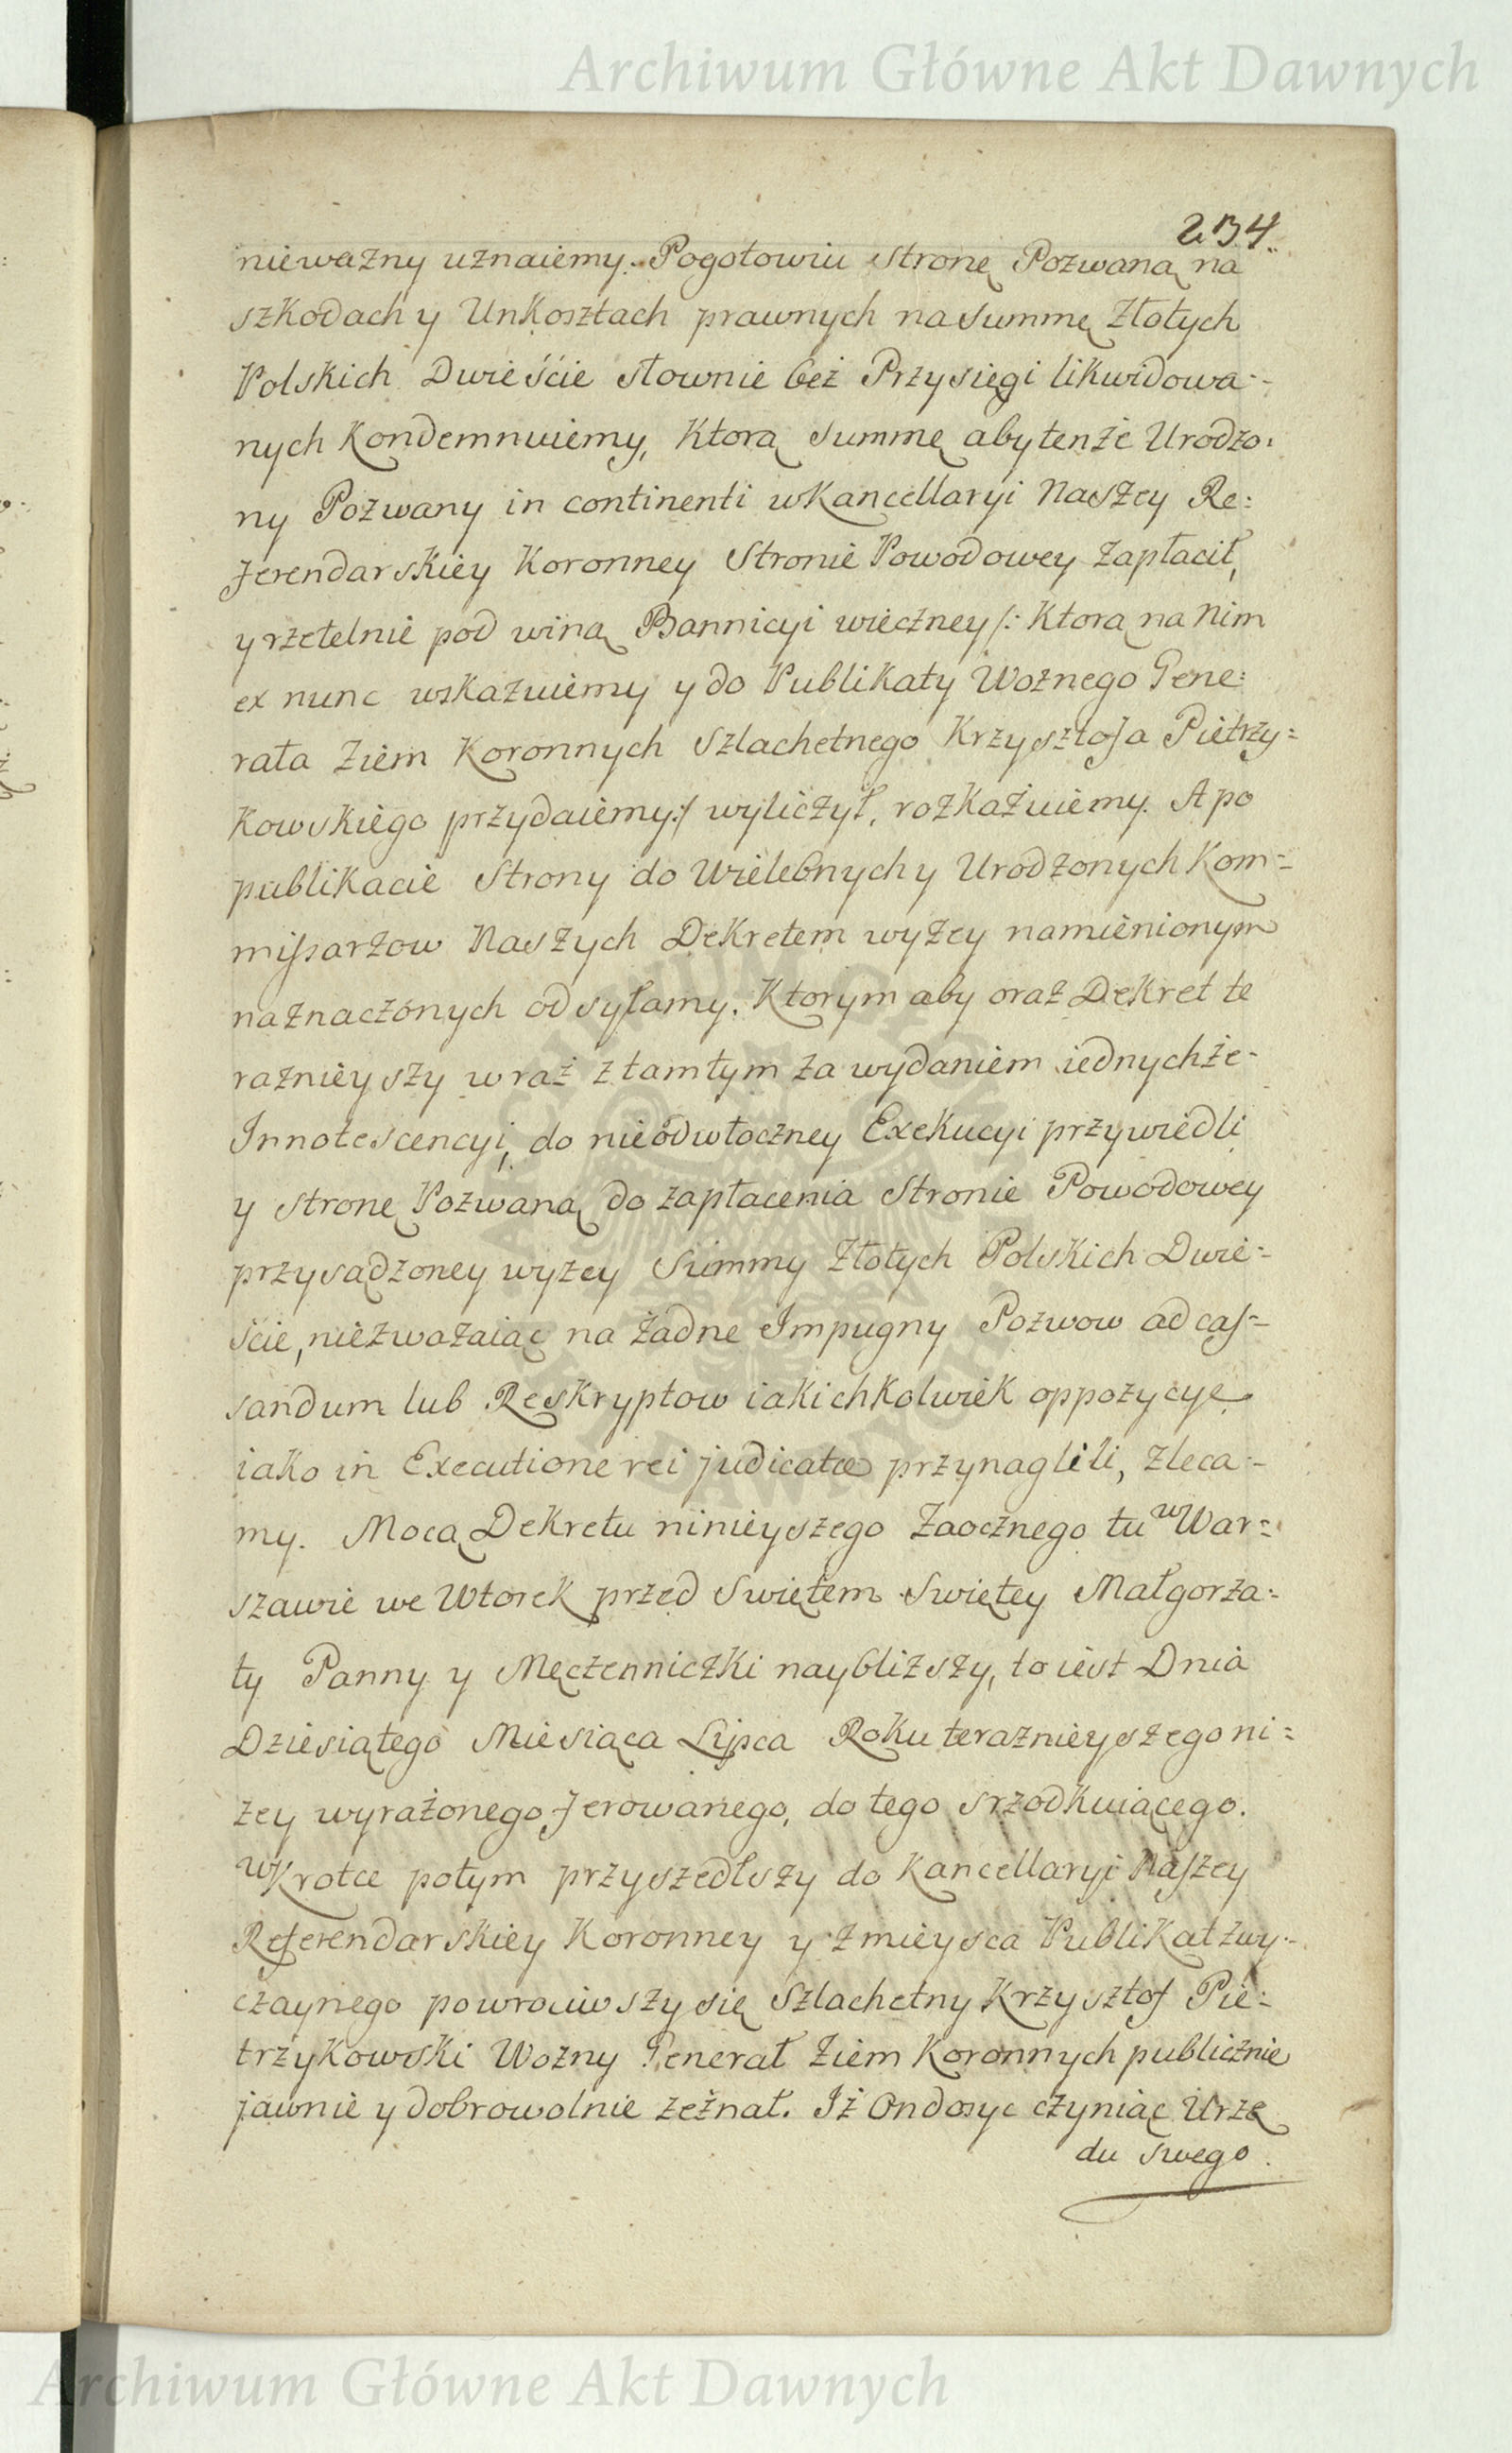 Archiwum Główne Akt Dawnych
234.
nieważny uznaiemy. Pogotowiu stronę Pozwaną na
szkodach y Unkosztach prawnych na summę Złotych
Polskich Dwieście słownie bez Przysięgi likwidowa-
nych Kondemnuiemy, Ktorą summę aby tenże Urodzo:
ny Pozwany in continenti w Kancellaryi Naszey Re:
ferendarskiey Koronney Stronie Powodowey zapłacił,
y rzetelnie pod winą Bannicyi wieczney /: Ktorą na Nim
ex nunc wskazuiemy y do Publikaty Woznego Gene:
rała Ziem Koronnych Szlachetnego Krzysztofa Pietrzy:
Kowskiego przydaiemy :/ wyliczył, rozkazuiemy. A po
publikacie Strony do Wielebnych y Urodzonych Kom-
missarzow Naszych Dekretem wyżey namienionym
naznaczonych odsyłamy. Ktorym aby oraz Dekret te
raznieyszy wraz z tamtym za wydaniem iednychże-
Innotescencyi, do nieodwłoczney Exekucyi przywiedli
y stronę Pozwaną do zapłacenia Stronie Powodowey
przysądzoney wyżey Summy Złotych Polskich Dwie-
ście, niezważaiąc na żadne Impugny Pozwow ad cas-
sandum lub Reskryptow iakichkolwiek oppozycye
iako in Executione rei judicatæ przynaglili, zleca-
my. Mocą Dekretu ninieyszego Zaocznego tu w War-
szawie we Wtorek przed Swiętem Swiętey Małgorza:
ty Panny y Męczenniczki naybliższy, to iest Dnia
Dziesiątego Miesiąca Lipca Roku teraznieyszego ni:
żey wyrażonego ferowanego, do tego srzodkuiącego.
wKrotce potym przyszedłszy do Kancellaryi Naszey
Referendarskiey Koronney y z mieysca Publikat zwy-
czaynego powrociwszy się Szlachetny Krzysztof Pie:
trzykowski Wozny Generał Ziem Koronnych publicznie
jawnie y dobrowolnie zeznał. Iż On dosyc czyniąc Urzę
du swego.
Archiwum Główne Akt Dawnych